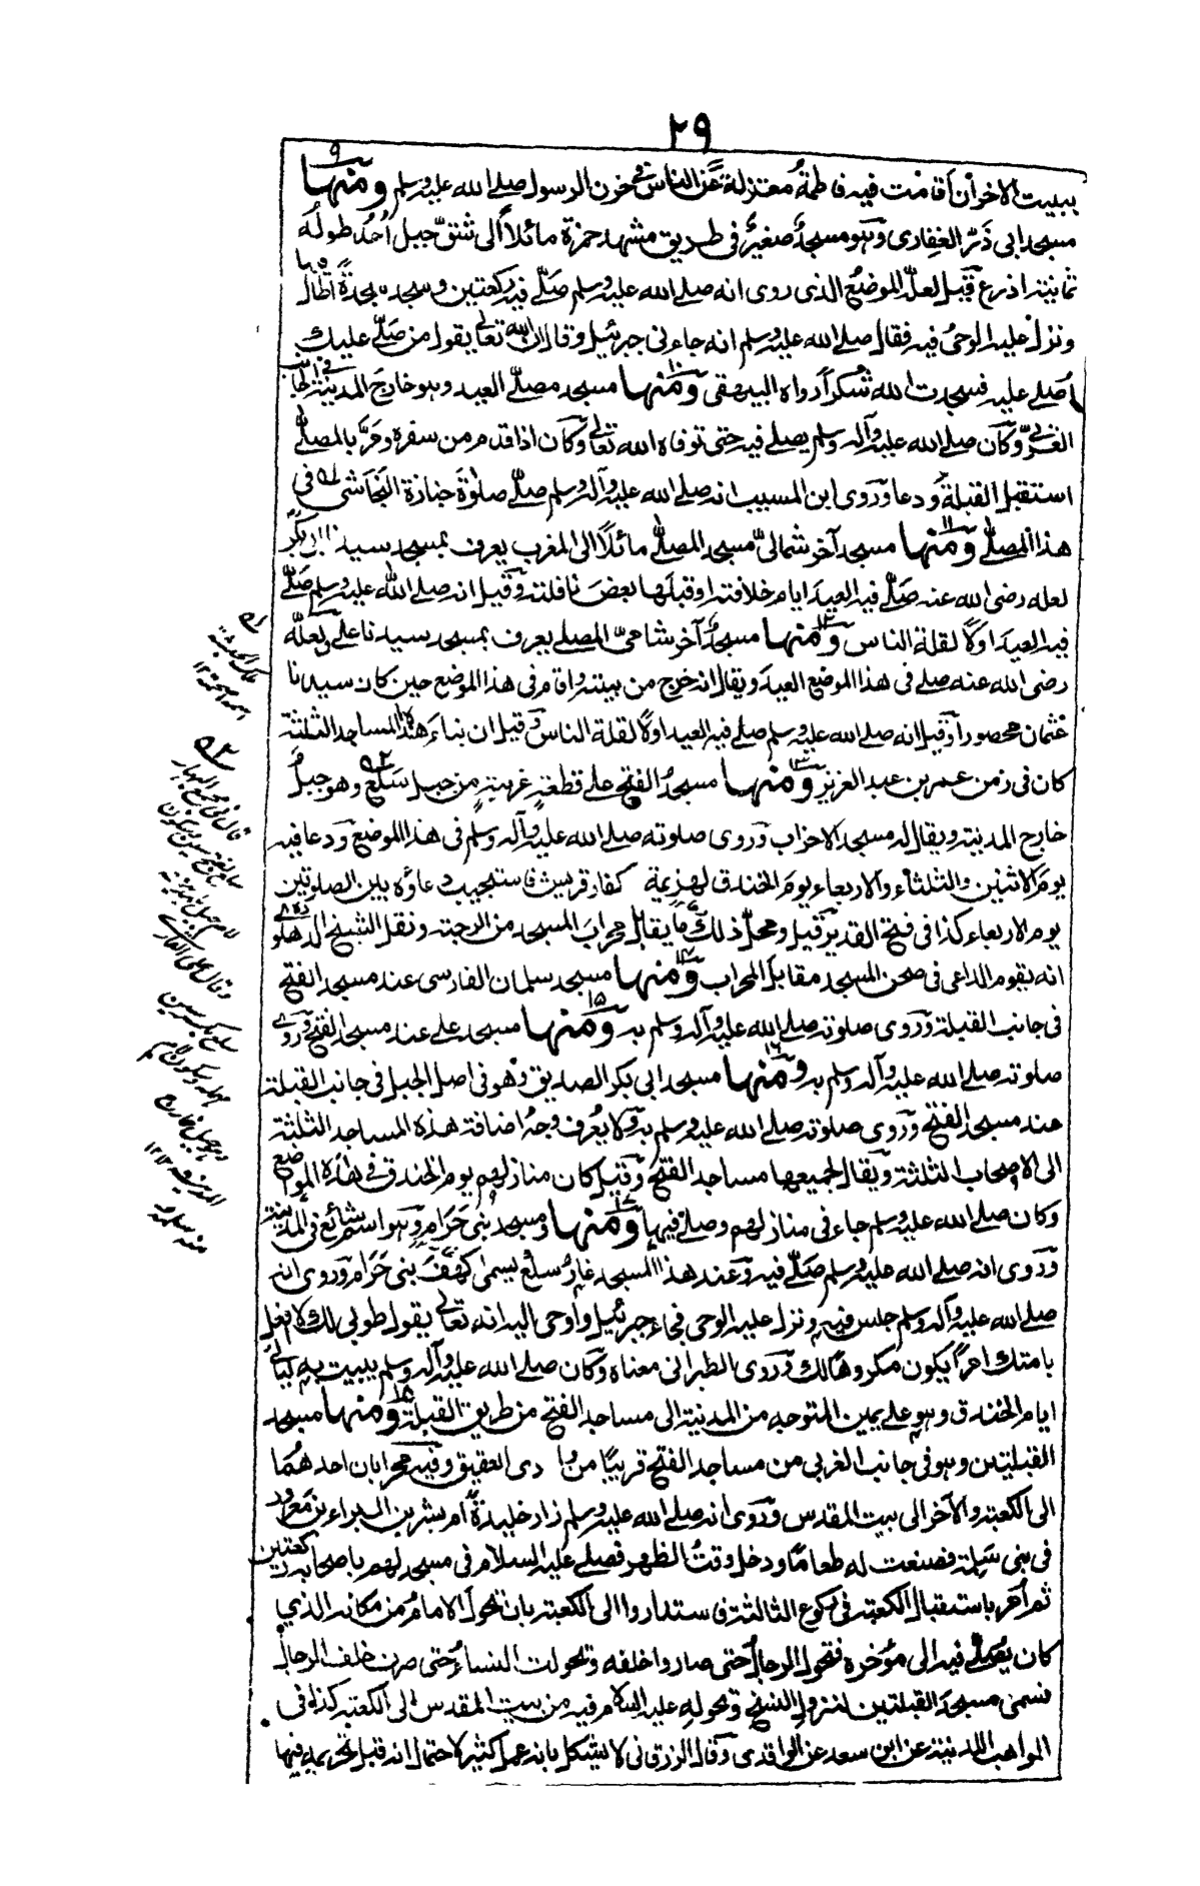 ٢٩
ببيت الاحزان اقامت فيه فاطمة معتزلة عن الناس في حزن الرسول صلى الله عليه وسلم ومنها ٩
مسجد ابي ذر الغفاري وهو مسجد صغير في طريق مشهد حمزة مائلا الى شق جبل احد طوله
ثمانية اذرع قيل لعله الموضع الذي روى انه صلى الله عليه وسلم صلى فيه ركعتين وسجد سجدة اطالها
ونزل عليه الوحي فيه فقال صلى الله عليه وسلم انه جاءني جبرئيل وقال ان الله تعالى يقول من صلى عليك
اصلي عليه فسجدت لله شكرا رواه البيهقي ومنها ١٠ مسجد مصلى العيد وهو خارج المدينة في الجانب
الغربي وكان صلى الله عليه وآله وسلم يصلي فيه حتى توفاه الله تعالى وكان اذا قدم من سفره ومر بالمصلى
استقبل القبلة ودعا وروى ابن المسيب انه صلى الله عليه وآله وسلم صلى صلوة جنازة النجاشي في
هذا المصلى ومنها ١١ مسجد آخر شمالي مسجد المصلى مائلا الى المغرب يعرف بمسجد سيدنا ابي بكر
لعله رضى الله عنه صلى فيه العيد ايام خلافته او قبلها بعض نافلته وقيل انه صلى الله عليه وسلم صلى
فيه العيد اولا لقلة الناس ومنها ١٢ مسجد آخر شامي المصلى يعرف بمسجد سيدنا علي لعله
رضى الله عنه صلى في هذا الموضع العيد ويقال انه خرج من بيته واقام في هذا الموضع حين كان سيدنا
عثمان محصورا وقيل انه صلى الله عليه وسلم صلى فيه العيد اولا لقلة الناس وقيل ان بناء هذه المساجد الثلثة
كان في زمن عمر بن عبد العزيز ومنها ١٣ مسجد الفتح على قطعة غربية من جبل سلع وهو جبل
خارج المدينة ويقال له مسجد الاحزاب وروى صلوته صلى الله عليه وآله وسلم في هذا الموضع ودعا فيه
يوم الاثنين والثلثاء والاربعاء يوم الخندق لهزيمة كفار قريش فاستجيب دعاؤه بين الصلوتين
يوم الاربعاء كذا في فتح القدير قيل ومحل ذلك ما يقابل محراب المسجد من الرحبة ونقل الشيخ الدهلوي
انه يقوم الداعي في صحن المسجد مقابل المحراب ومنها ١٤ مسجد سلمان الفارسي عند مسجد الفتح
في جانب القبلة وروى صلوته صلى الله عليه وآله وسلم به ومنها ١٥ مسجد علي عند مسجد الفتح وروي
صلوته صلى الله عليه وآله وسلم به ومنها ١٦ مسجد ابي بكر الصديق وهو في اصل الجبل في جانب القبلة
عند مسجد الفتح وروى صلوته صلى الله عليه وسلم به ولا يعرف وجه اضافة هذه المساجد الثلثة
الى الاصحاب الثلثة ويقال لجميعها مساجد الفتح وقيل كان منازلهم يوم الخندق في هذه المواضع
وكان صلى الله عليه وسلم جاء في منازلهم وصلى فيها ومنها ١٧ مسجد بني حرام وهو اسم شائع في المدينة
وروى انه صلى الله عليه وسلم صلى فيه وعند هذا المسجد غار سلع يسمى كهف بني حرام وروى انه
صلى الله عليه وآله وسلم جلس فيه ونزل عليه الوحي فجاء جبرئيل واوحى اليه انه تعالى يقول طوبى لك لا نفعل
بامتك امرا يكون مكروها لك وروى الطبراني معناه وكان صلى الله عليه وآله وسلم يبيت به ليالي
ايام الخندق وهو على يمين المتوجه من المدينة الى مساجد الفتح من طريق القبلة ومنها ١٨ مسجد
القبلتين وهو في جانب الغربي من مساجد الفتح قريبا من وادي العقيق وفيه محرابان احدهما
الى الكعبة والآخر الى بيت المقدس وروى انه صلى الله عليه وسلم زار خليدة ام بشر بن البراء بن معرور
في بني سلمة فصنعت له طعاما ودخل وقت الظهر فصلى عليه السلام في مسجد لهم باصحابه ركعتين
ثم امر باستقبال الكعبة في ركوع الثالثة فاستداروا الى الكعبة بان تحول الامام من مكانه الذي
كان يصلي فيه الى مؤخره فتحول الرجال حتى صاروا خلفه وتحولت النساء حتى صرن خلف الرجال
فسمى مسجد القبلتين لنزول النسخ وتحوله عليه السلام فيه من بيت المقدس الى الكعبة كذا في
المواهب اللدنية عن ابن سعد عن الواقدي وقال الزرقاني لا يشكل بانه عمل كثير لاحتمال انه قبل تحريمه فيها
ملك الحبشة
قال في مجمع البحار
وقال علي القاري